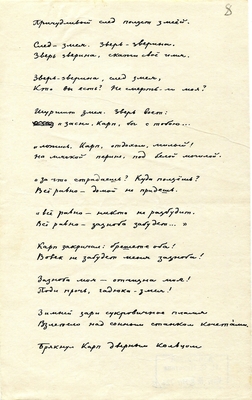 8
Причудливый след ползет змеей.
След – змея. Зверь – зверина.
Зверь зверина, скажи своё имя.
Зверь-зверина, след змея,
Кто вы есть? Не смерть-ли моя?
Шуршит змея. Зверь воет:
«засни, Карп, бог с тобою...
«ложись, Карп, отдохни, милой!
На мягкой перине, под белой могилой.
«За что страдаешь? Куда ползёшь?
Всё равно – домой не придешь.
«всё равно – никто не разбудит.
Всё равно – зазноба забудет...»
Карп закричал: брешете оба!
Вовек не забудет меня зазноба!
Зазноба моя – отчизна моя!
Поди прочь, гадюка-змея!
Зимней зари сукровичное пламя
Взлетело над сонным станком
Брякнул Карп дверным кольцом